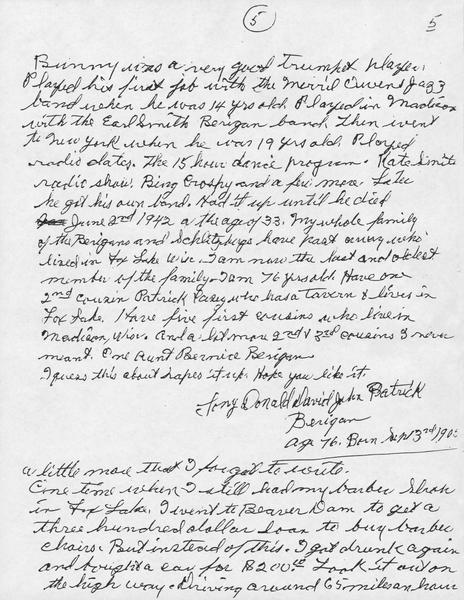 5
5
Bunny was a very good trumpet player.
Played his first job with the Merril Owens Jazz
band when he was 14 yrs old. Played in Madison
with the Earl Smith Berigan band. Then went
to New York when he was 19 yrs old. Played
radio dates. The 15 hour dance program. Kate Smith
radio show. Bing Crosby and a few more. Later
he got his own band. Had it up until he died
June 2nd 1942 a the age of 33. My whole family
of the Berigans and have past away who
lived in Fox Lake Wis. I am now the last and oldest
member of the family. I am 76 yrs old. Have one
2nd cousin Patrick Casey who has a tavern & lives in
Fox Lake. Have five first cousins who live in
Madison, Wis. And a lot more 2nd & 3rd cousins I never
meant. One Aunt Bernice Berigan
I guess this about shapes it up. Hope you like it.
Donald David John Patrick
Berigan
age 76. Born Sept 3rd
a little more that I forgot to write.
One time when I still had my barber shop
in Fox Lake. I went to Beaver Dam to get a
three hundred dollar loan to buy barber
chairs. But instead of this. I got drunk again
and bought a car for $200.00 Took it out on
the high way. Driving around 65 miles an hour